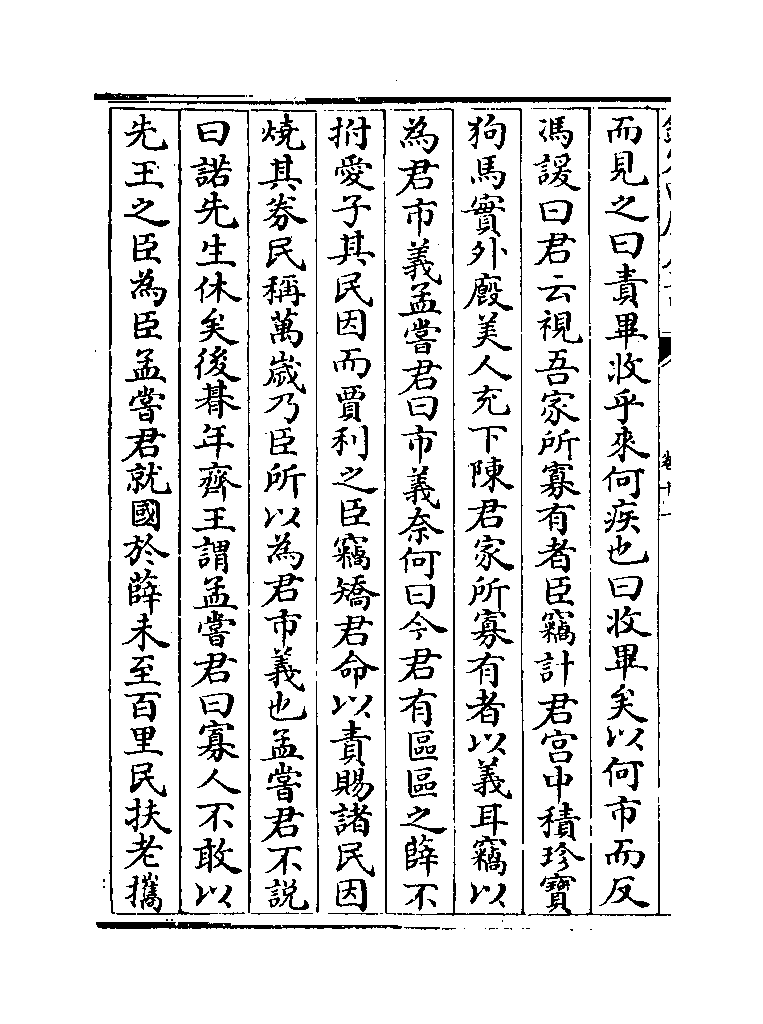 而見之曰責畢收乎來何疾也曰收畢矣以何市而反
馮諼曰君云視吾家所寡有者臣竊計君宫中積珍寶
狗馬實外廏美人充下陳君家所寡有者以義耳竊以
為君市義孟嘗君曰市義奈何曰今君有區區之薛不
拊愛子其民因而賈利之臣竊矯君命以責賜諸民因
燒其券民稱萬歲乃臣所以為君市義也孟嘗君不説
曰諾先生休矣後朞年齊王謂孟嘗君曰寡人不敢以
先王之臣為臣孟嘗君就國於薛未至百里民扶老攜